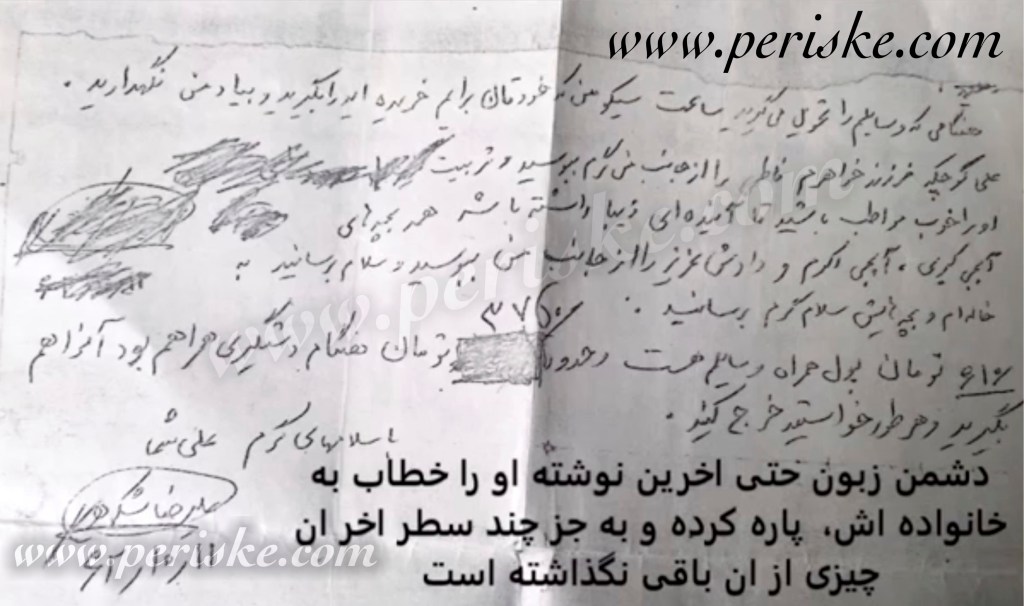 www.periske.com
هنگامی که وسایلم را تحویل می‌گیرید ساعت سیکو من که خودتان برایم خریده اید را بگیرید و بیاد من نگهدارید.
علی کوچیکه فرزند خواهرم فاطی را از جانب من گرم ببوسید و تربیت
او را خوب مواظب باشید تا آینده‌ای زیبا داشته باشد همه بچه‌های
آبجی کبری، آبجی اکرم و داداش عزیز را از جانب من ببوسید و سلام برسانید به
خاله‌ام و بچه‌هایش سلام گرم برسانید.
۶۱۶ تومان پول همراه وسایلم هست و حدود تومان هنگام دستگیری همراهم بود آنرا هم
بگیرید و هرطور خواستید خرج کنید.
با سلامهای گرم علی شما
دشمن زبون حتی اخرین نوشته او را خطاب به
خانواده اش، پاره کرده و به جز چند سطر اخر ان
چیزی از ان باقی نگذاشته است
www.periske.com
www.periske.com